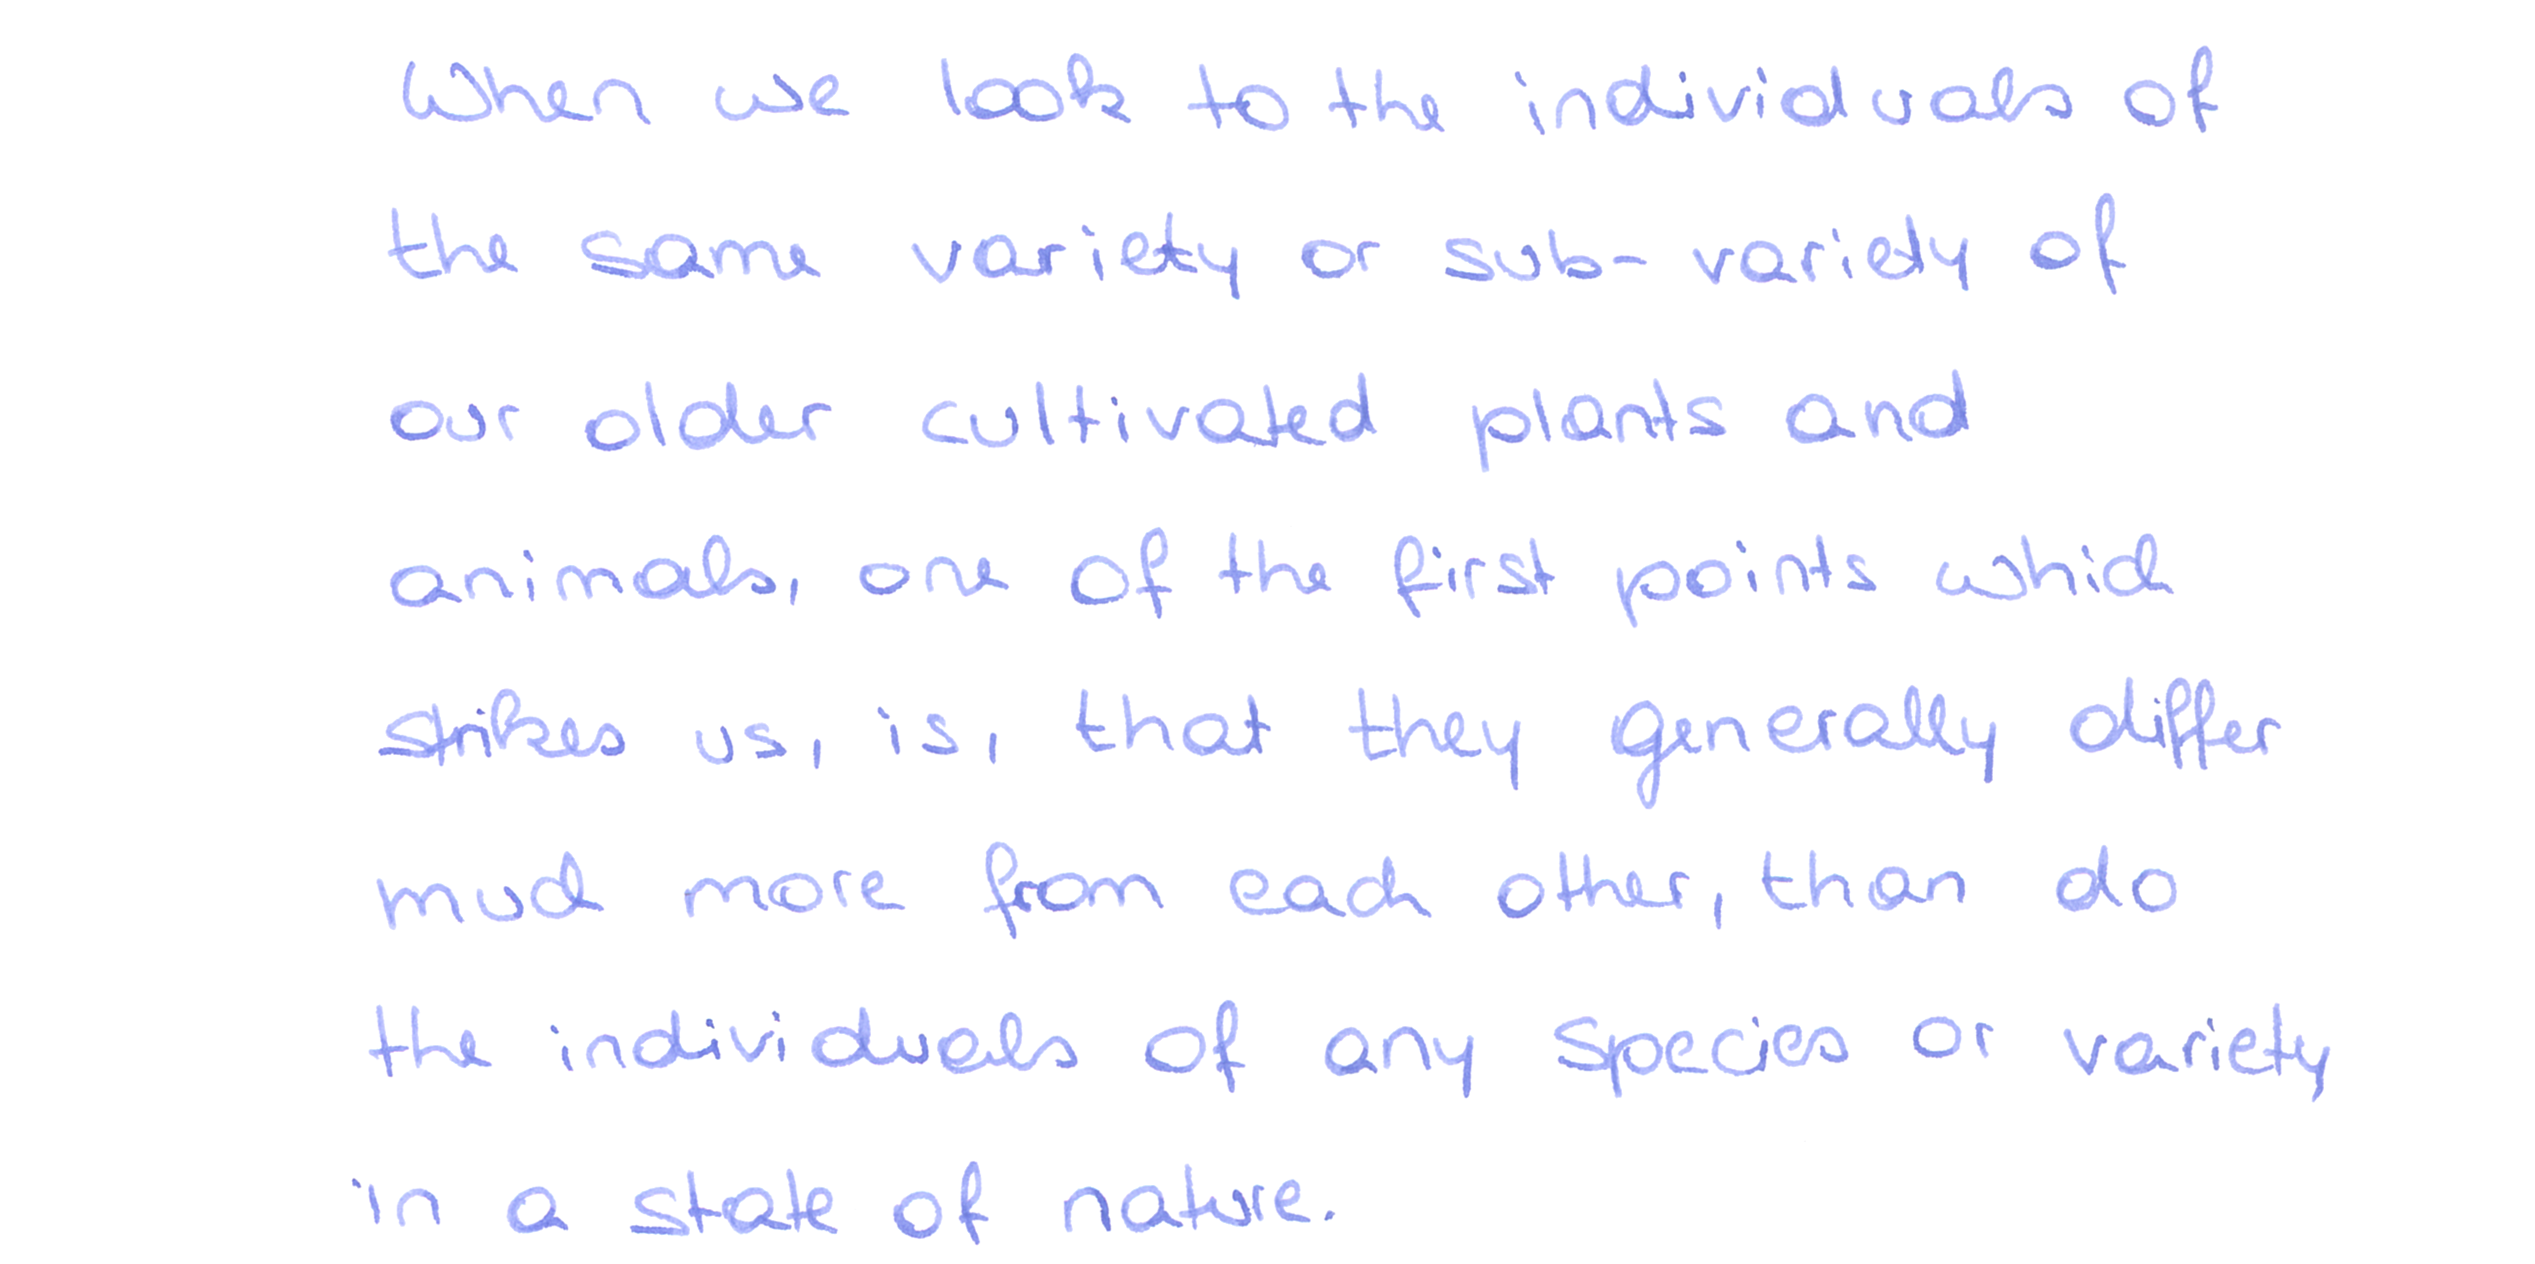 When we look to the individuals of
the same variety or sub-variety of
our older cultivated plants and
animals, one of the first points which
strikes us, is, that they generally differ
much more from each other, than do
the individuals of any species or variety
in a state of nature.